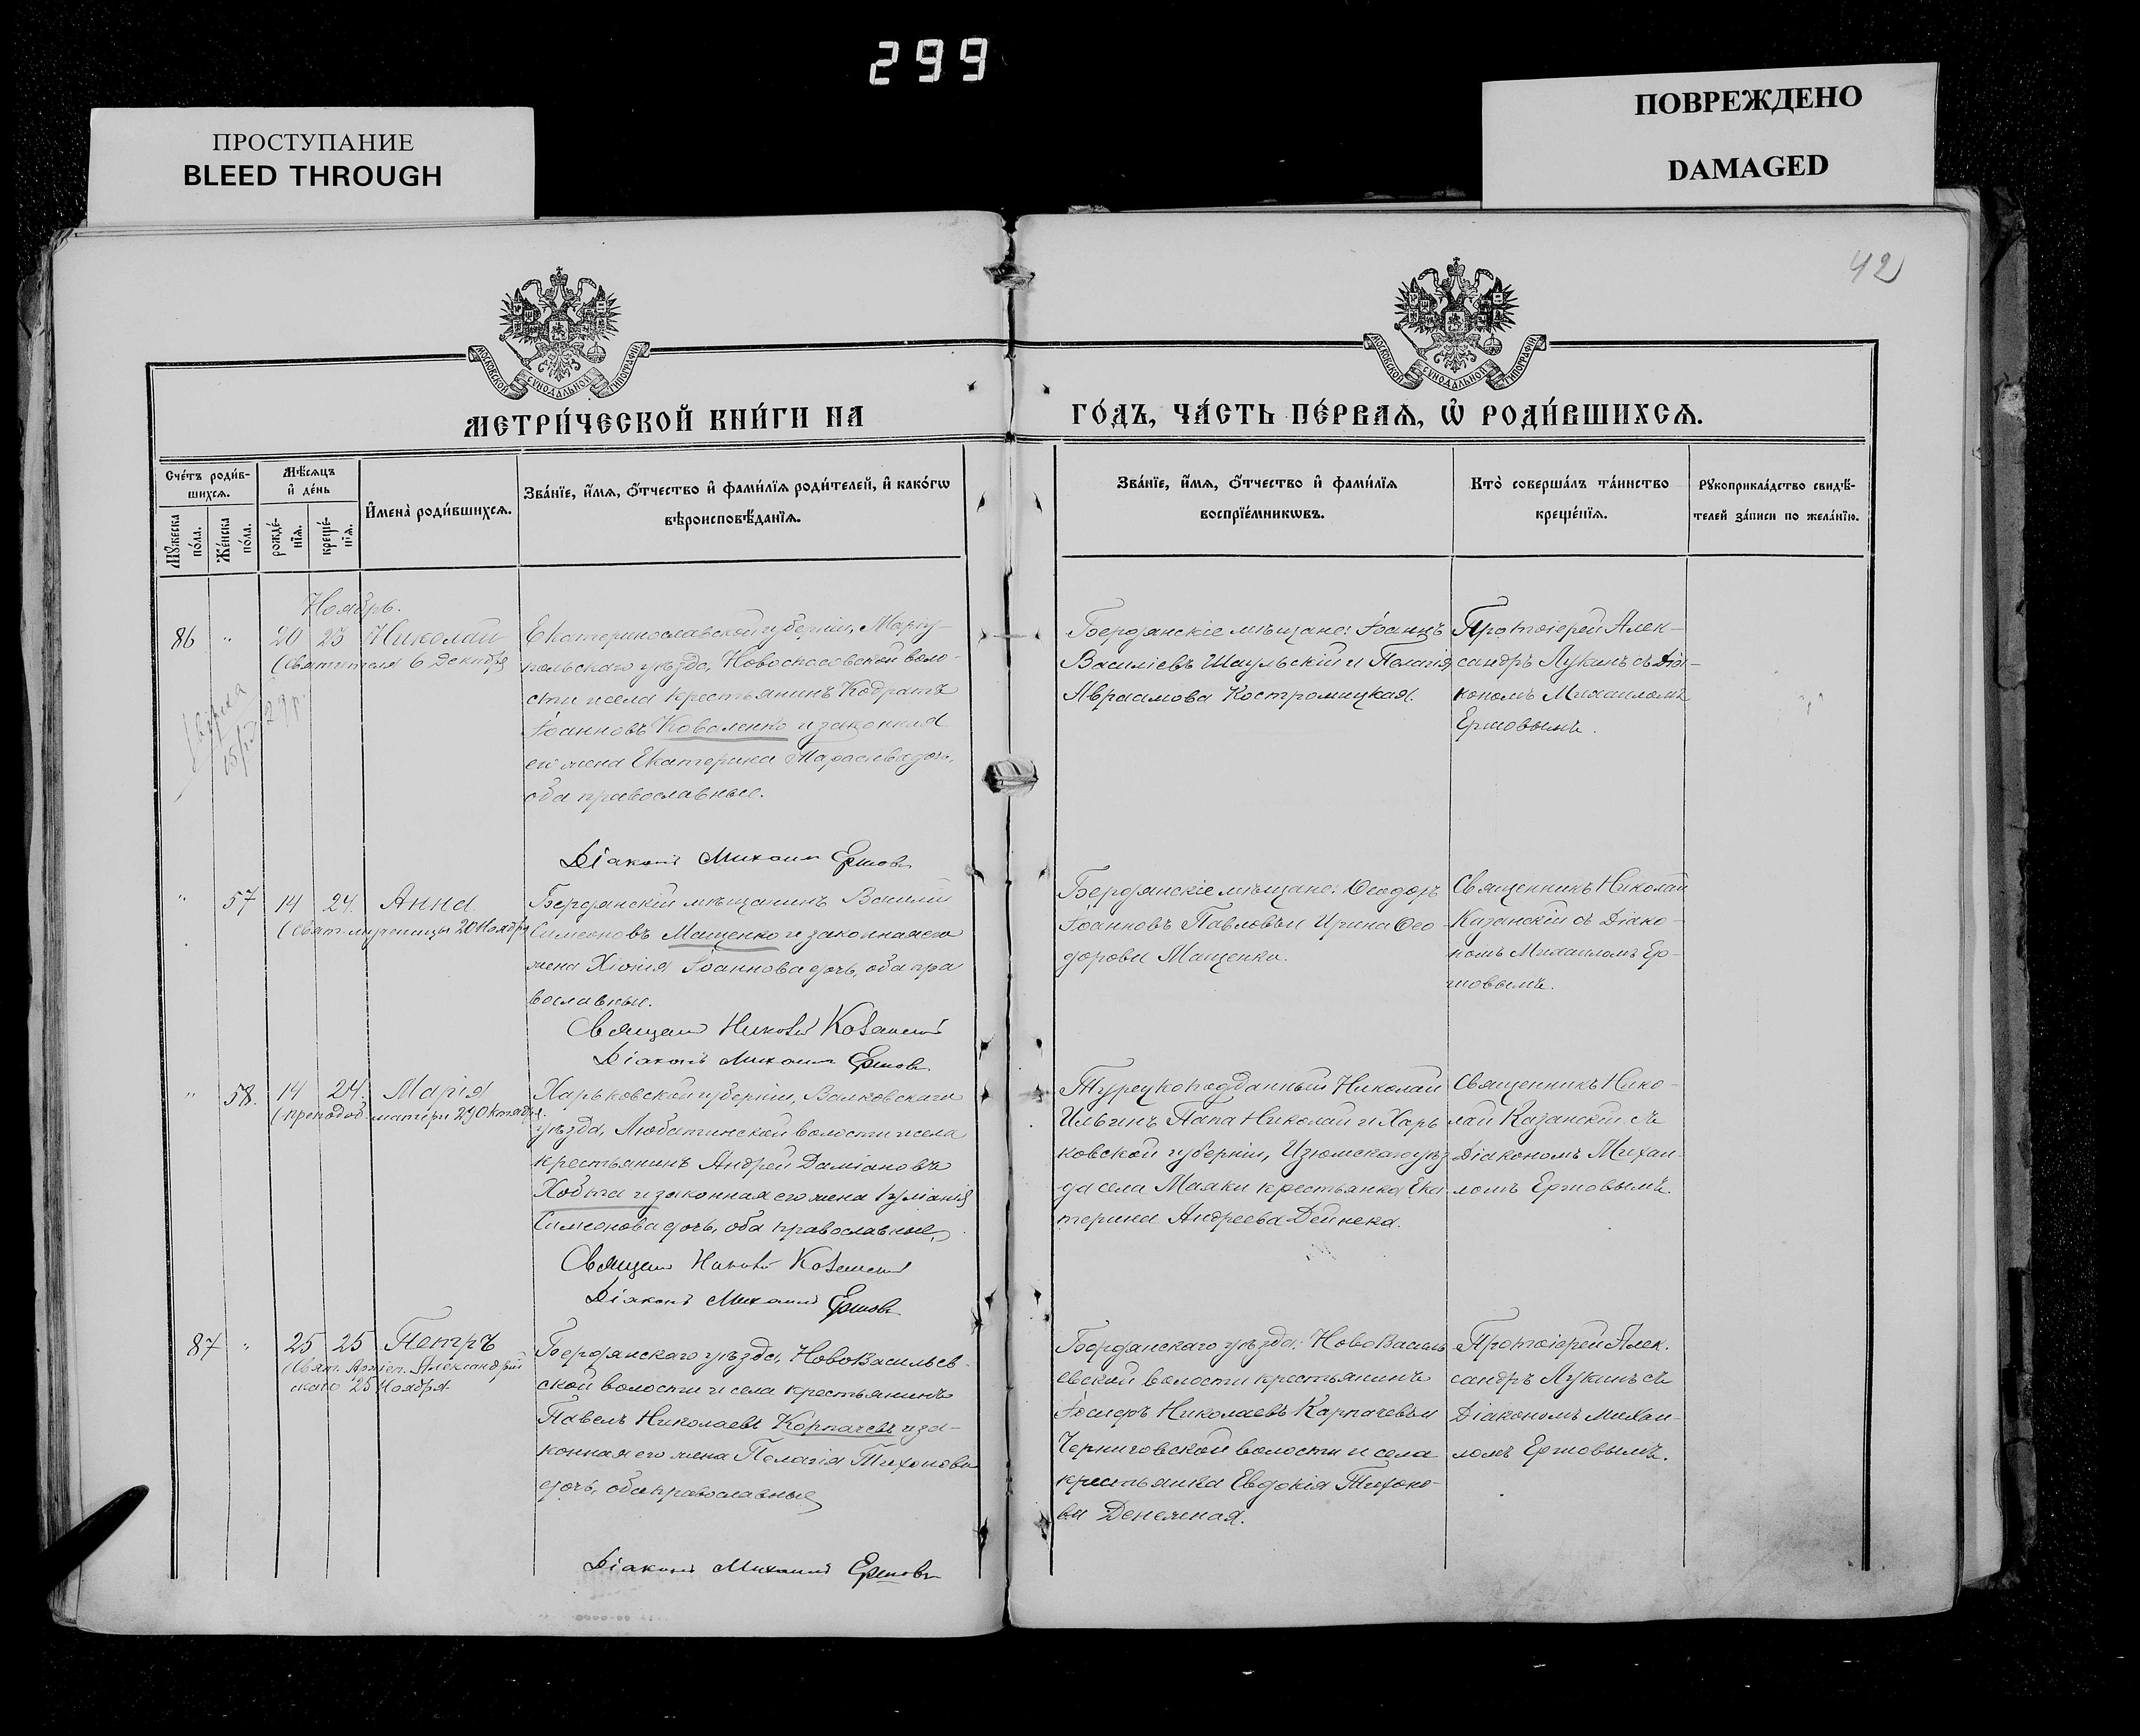 299
ПРОСТУПАНИЕ
BLEED THROUGH
ПОВРЕЖДЕНО
DAMAGED
42
МОСКОВСКОЙ СУНОДАЛЬНОЙ ТИПОГРАФІИ
МОСКОВСКОЙ СУНОДАЛЬНОЙ ТИПОГРАФІИ
МЕТРИ́ЧЕСКОЙ КНИ́ГИ НА
ГО́ДЪ, ЧА́СТЬ ПЕ́РВАѦ, Ѡ҆ РОДИ́ВШИХСѦ.
Сче́тъ роди́в-
шихсѧ.
Мꙋ́жеска по́ла.
Же́нска по́ла.
Мѣ́сѧцъ
и҆ де́нь
рожде́-
нїѧ.
креще́-
нїѧ.
И҆мена̀ роди́вшихсѧ.
Зва́нїе, и҆́мѧ, ѻ҆́тчество и҆ фами́лїѧ роди́телей, и҆ како́гѡ
вѣроисповѣ́данїѧ.
Зва́нїе, и҆́мѧ, ѻ҆́тчество и҆ фами́лїѧ
воспрїе́мникѡвъ.
Кто̀ соверша́лъ та́инство
креще́нїѧ.
Рꙋкоприкла́дство свидѣ́-
телей за́писи по жела́нїю.
Ноябрь.
86 " 20 23 Николай
(Святителя 6 Декабря
Екатеринославской губерніи, Маріу-
польскаго уѣзда, Новоспасовской воло-
сти и села крестьянинъ Кодратъ
Іоанновъ Коваленко и законная
его жена Екатерина дочь,
оба православные.
Діаконъ Михаилъ Ершовъ
Бердянскіе мѣщане: Іоаннъ
Василіевъ Шаульскій и Пелагія
Авраамова Костромицкая.
Протоіерей Алек-
сандръ Лукинъ съ Діа-
кономъ Михаиломъ
Ершовымъ.
" 57 14 24. Анна
(Свят. мученицы 20 Ноября
Бердянскій мѣщанинъ Василій
Симеоновъ Мащенко и законная его
жена Хіонія Іоаннова дочь, оба пра
вославные.
Священн Николай Казанскій
Діаконъ Михаилъ Ершовъ
Бердянскіе мѣщане: Ѳеодоръ
Іоанновъ Павловъ и Ирина Ѳео
дорова Мащенко.
Священникъ Николай
Казанскій съ Діако-
номъ Михаиломъ Ер-
шовымъ.
" 58. 14 24. Марія
(преподоб. матери 29 Октября.
Харьковской губерніи, Валковскаго
уѣзда, Люботинской волости и села
крестьянинъ Андрей Даміановъ
Хобта и законная его жена Іуліанія
Симеонова дочь, оба православные,
Священн Николай Казанскій
Діаконъ Михаилъ Ершовъ
Турецкоподданный Николай
Ильинъ Папа Николай и Харь
ковской губерніи, Изюмскаго уѣз
да села Маяки крестьянка Ека
терина Андреева Дейнека.
Священникъ Нико-
лай Казанскій съ
Діакономъ Михаи-
ломъ Ершовымъ.
87 " 25 25 Петръ
(Свят. Архіеп. Александрій
скаго 25 Ноября.
Бердянскаго уѣзда, НовоВасильев-
ской волости и села крестьянинъ
Павелъ Николаевъ Карпачевъ и за-
конная его жена Пелагія Тихонова
дочь, оба православные
Діаконъ Михаилъ Ершовъ
Бердянскаго уѣзда: НовоВасиль
евской волости крестьянинъ
Іосифъ Николаевъ Карпачевъ и
Черниговской волости и села
крестьянка Евдокія Тихоно-
ва Денежная.
Протоіерей Алек.
сандръ Лукинъ съ
Діакономъ Михаи-
ломъ Ершовымъ.